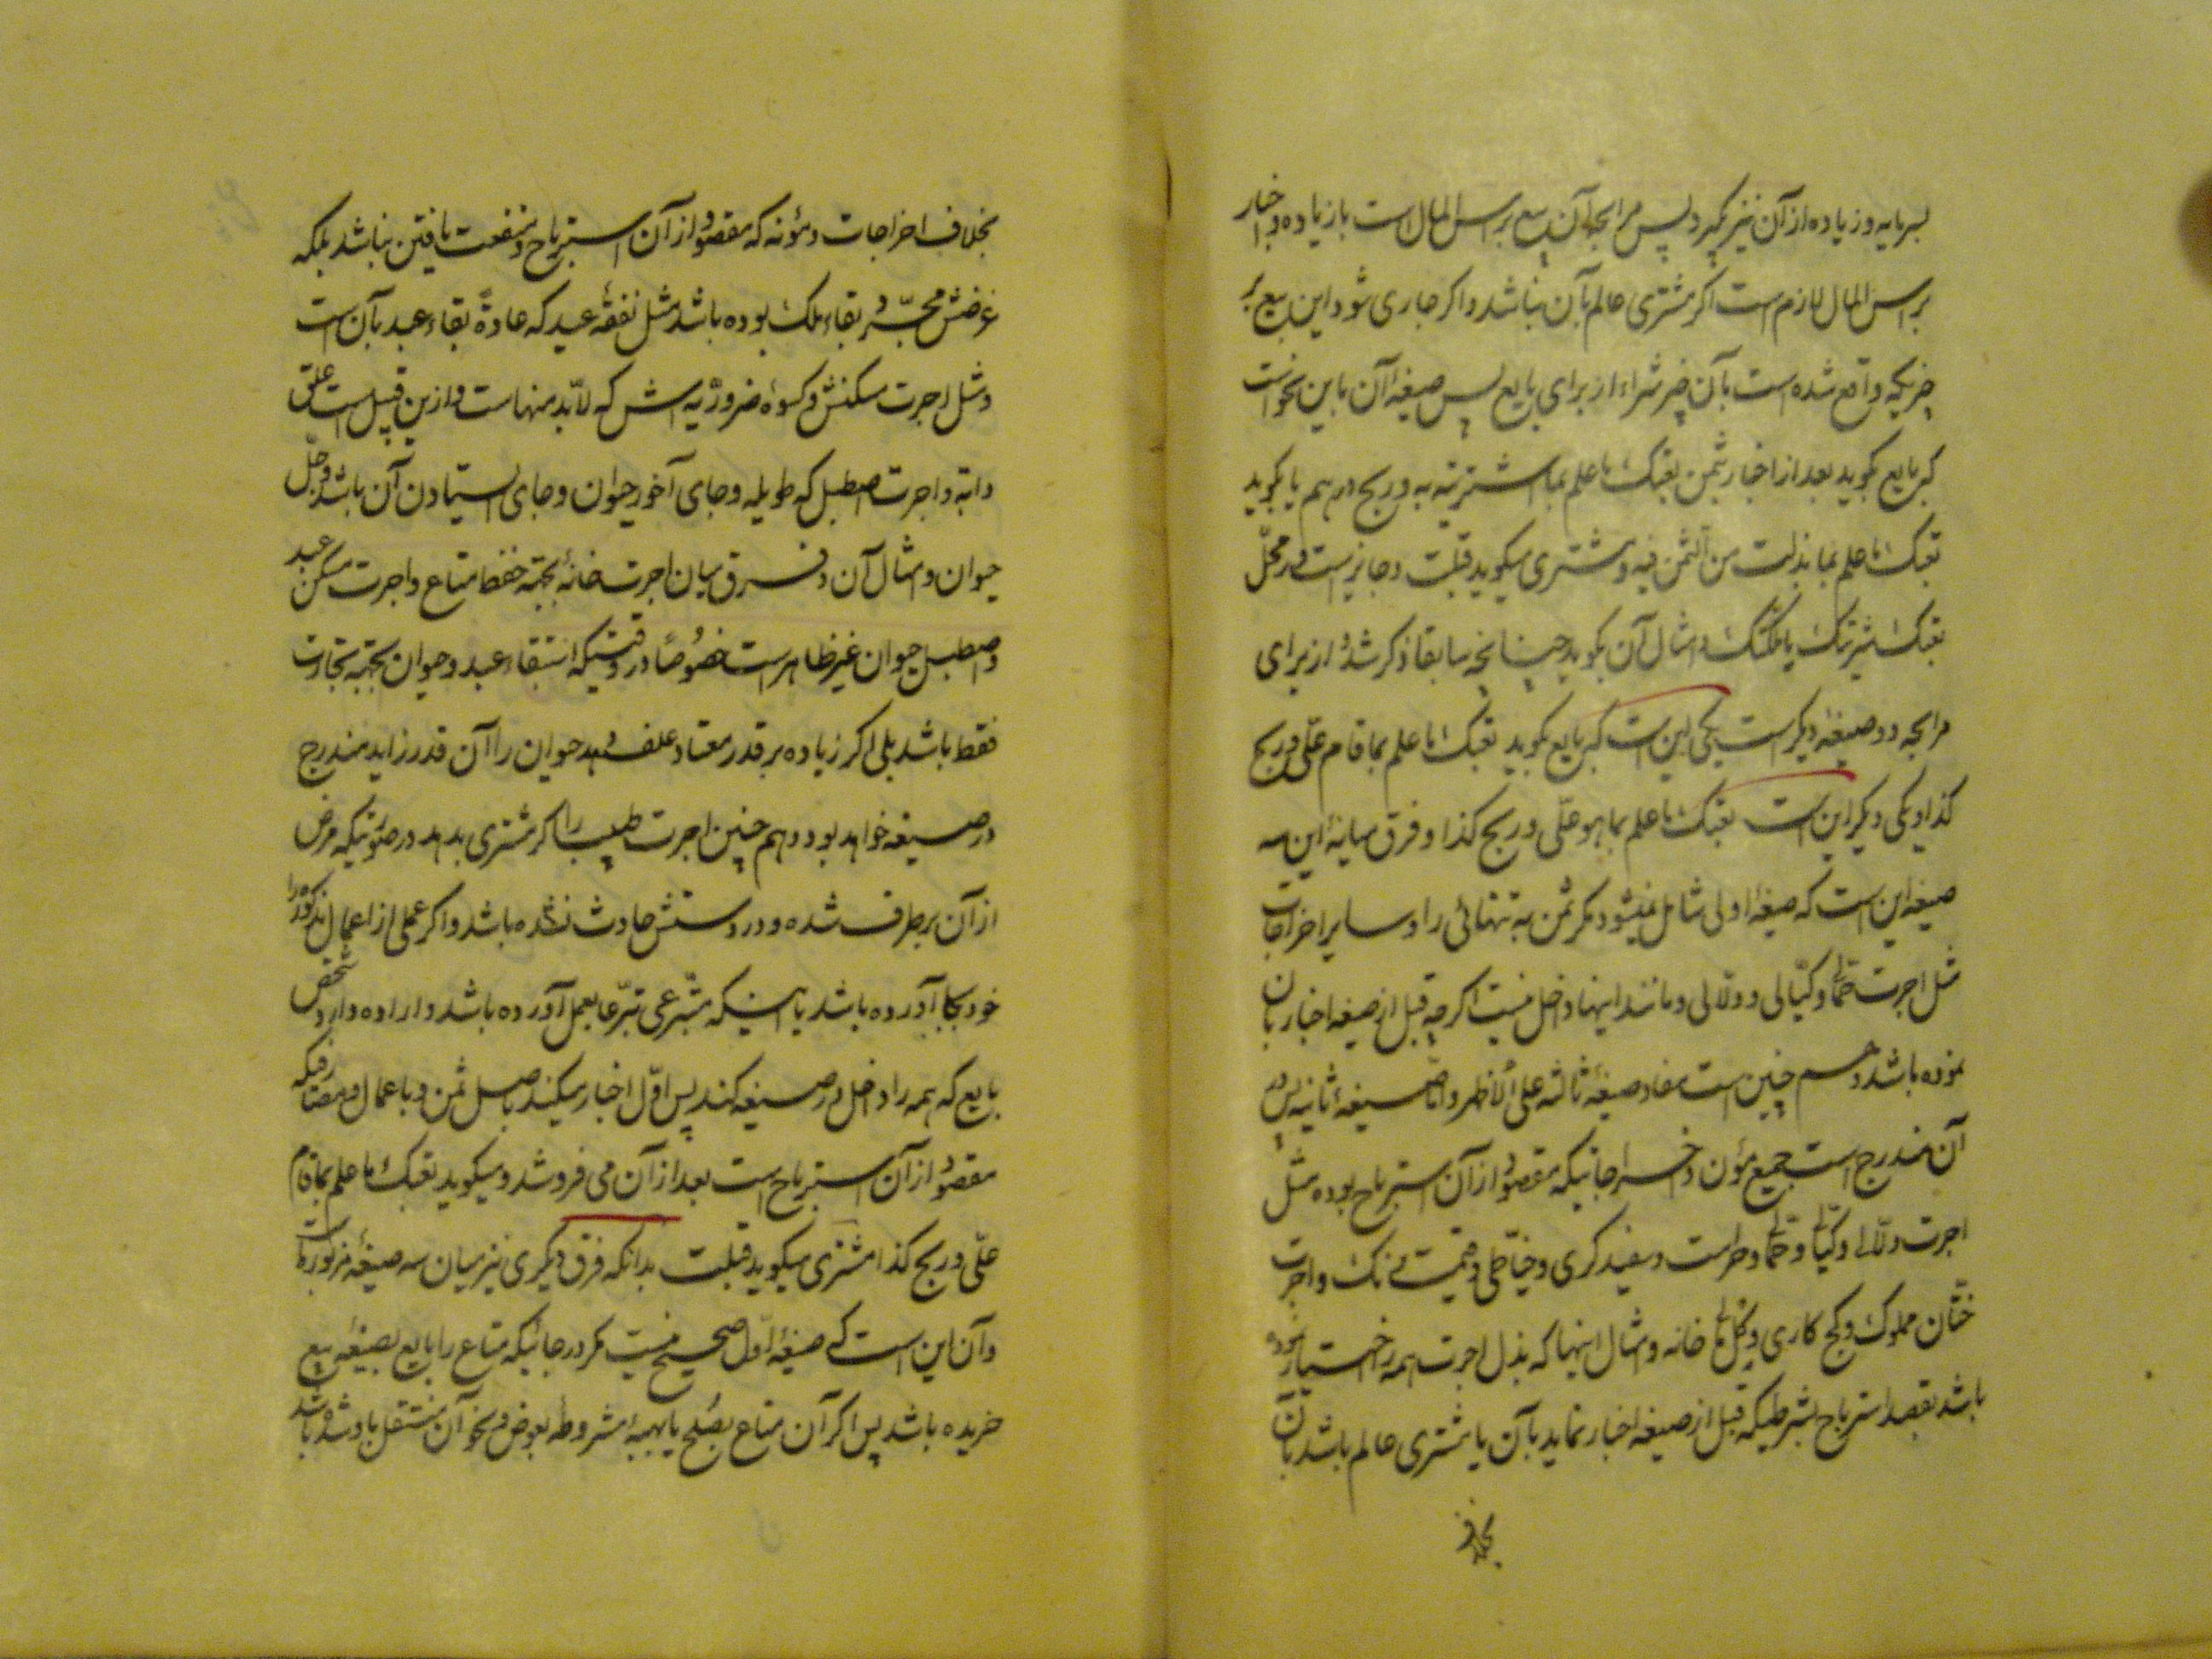 بسرمایه و زیاده از آن نیز بگیرد پس مرابحه آن بیع برأس المال است با زیاده و اخبار
برأس المال لازم است اگر مشتری عالم بآن نباشد و اگر جاری شود این بیع بر
چیزیکه واقع شده است بآن چیز شراء از برای بایع پس صیغه آن باین نحو است
که بایع بگوید بعد از اخبار بثمن بعتک ما علم بما اشتریته به و ربح درهم یا بگوید
بعتک ما علم بما بذلت من الثمن فیه و مشتری میگوید قبلت و جایز است در محل
بعتک شریتک یا ملکتک و امثال آن بگوید چنانچه سابقا ذکر شد و از برای
مرابحه دو صیغه دیگر است یکی این است که بایع بگوید بعتک ما علم بما قام علیّ و ربح
کذا و یکی دیگر این است بعتک ما علم بما هو علیّ و ربح کذا و فرق میانۀ این سه
صیغه این است که صیغۀ اولی شامل نمیشود مگر ثمن به تنهائی را و سایر اخراجات
مثل اجرت حمالی و کیّالی و دلّالی و مانند اینها داخل نیست اگرچه قبل از صیغه اخبار بآن
نموده باشد و هم چنین است مفاد صیغۀ ثالثه علی الأظهر و امّا صیغۀ ثانیه پس در
آن مندرج است جمیع مؤن و اخراجاتیکه مقصود از آن استرباح بوده مثل
اجرت دلّالی و کیّالی و حمّالی و حراست و سفیدگری و خیّاطی و قیمت رنگ و اجرت
ختّان مملوک و گچ کاری و گِل خانه و امثال اینها که بذل اجرت همه را اختیار نموده
باشد بقصد استرباح بشرطیکه قبل از صیغه اخبار نماید بآن یا مشتری عالم باشد بآن
بخلاف
بخلاف اخراجات و مؤنه که مقصود از آن استرباح و منفعت یافتن نباشد بلکه
غرضش مجرّد بقاء ملک بوده باشد مثل نفقۀ عبد که عادةً بقاء عبد بآن است
و مثل اجرت سکنش و کسوۀ ضروریه اش که لابدّ منهاست و ازین قبیل است علق
دابه و اجرت اصطبل که طویله و جای آخور حیوان و جای ایستادن آن باشد و جلّ
حیوان و امثال آن و فرق میان اجرت خانۀ بجهة حفظ متاع و اجرت مسکن عبد
و اصطبل حیوان غیر ظاهر است خصوصًا در وقتیکه استبقاء عبد و حیوان بجهة تجارت
فقط باشد بلی اگر زیاده بر قدر معتاد علف دهد حیوان را آن قدر زاید مندرج
در صیغه خواهد بود و هم چنین اجرت طبیب را اگر مشتری بدهد در صورتیکه مرض
از آن برطرف شده و در دستش حادث نشده باشد و اگر عملی از اعمال مذکوره را
خود بجا آورده باشد یا اینکه متبرّعی تبرّعا بعمل آورده باشد و اراده دارد شخص
بایع که همه را داخل در صیغه کند پس اوّل اخبار میکند باصل ثمن و باعمال و مصارفیکه
مقصود از آن استرباح است بعد از آن می فروشد و میگوید بعتک ما علم بما قام
علیّ و ربح کذا مشتری میگوید قبلت بدانکه فرق دیگری نیز میان سه صیغۀ مزبوره است
و آن این است که صیغۀ اوّل صحیح نیست مگر در جائیکه متاع را بایع بصیغۀ بیع
خریده باشد پس اگر آن متاع بصلح یا بهبه مشروطه بعوض و نحو آن منتقل باو شده باشد